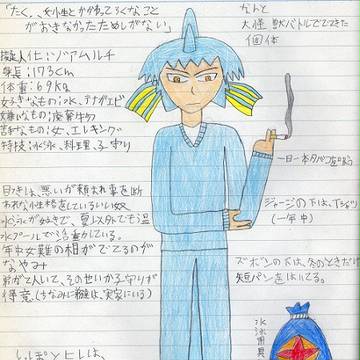 「たく、女性とかかわってろくなこと
がおきなかったためしがない」
擬人化:ゾアムルチ
身長:173cm
体重:69kg
好きなもの:水、テナガエビ
嫌いなもの:渡
苦手なもの:女、エレキング
特技:水泳、料理、子守り
目つきは、悪いが頼まれ事を断
われない性格をしているいい奴
水泳が好きで、夏以外でも温
水プールで活動している。
年中女難の相がでてるのが
なやみ
弟が7人いて、そのせいか子守りが
得意。(ちなみに は、実家にいる)
しっぽとヒレは、
なんと
大怪獣バトルででてきた
個体
一日一本タバコを吸う
ジャージの下は、Tシャツ
(一年中)
ズボンの下は、冬のときだけ
短パンをはいてる。
水泳用具